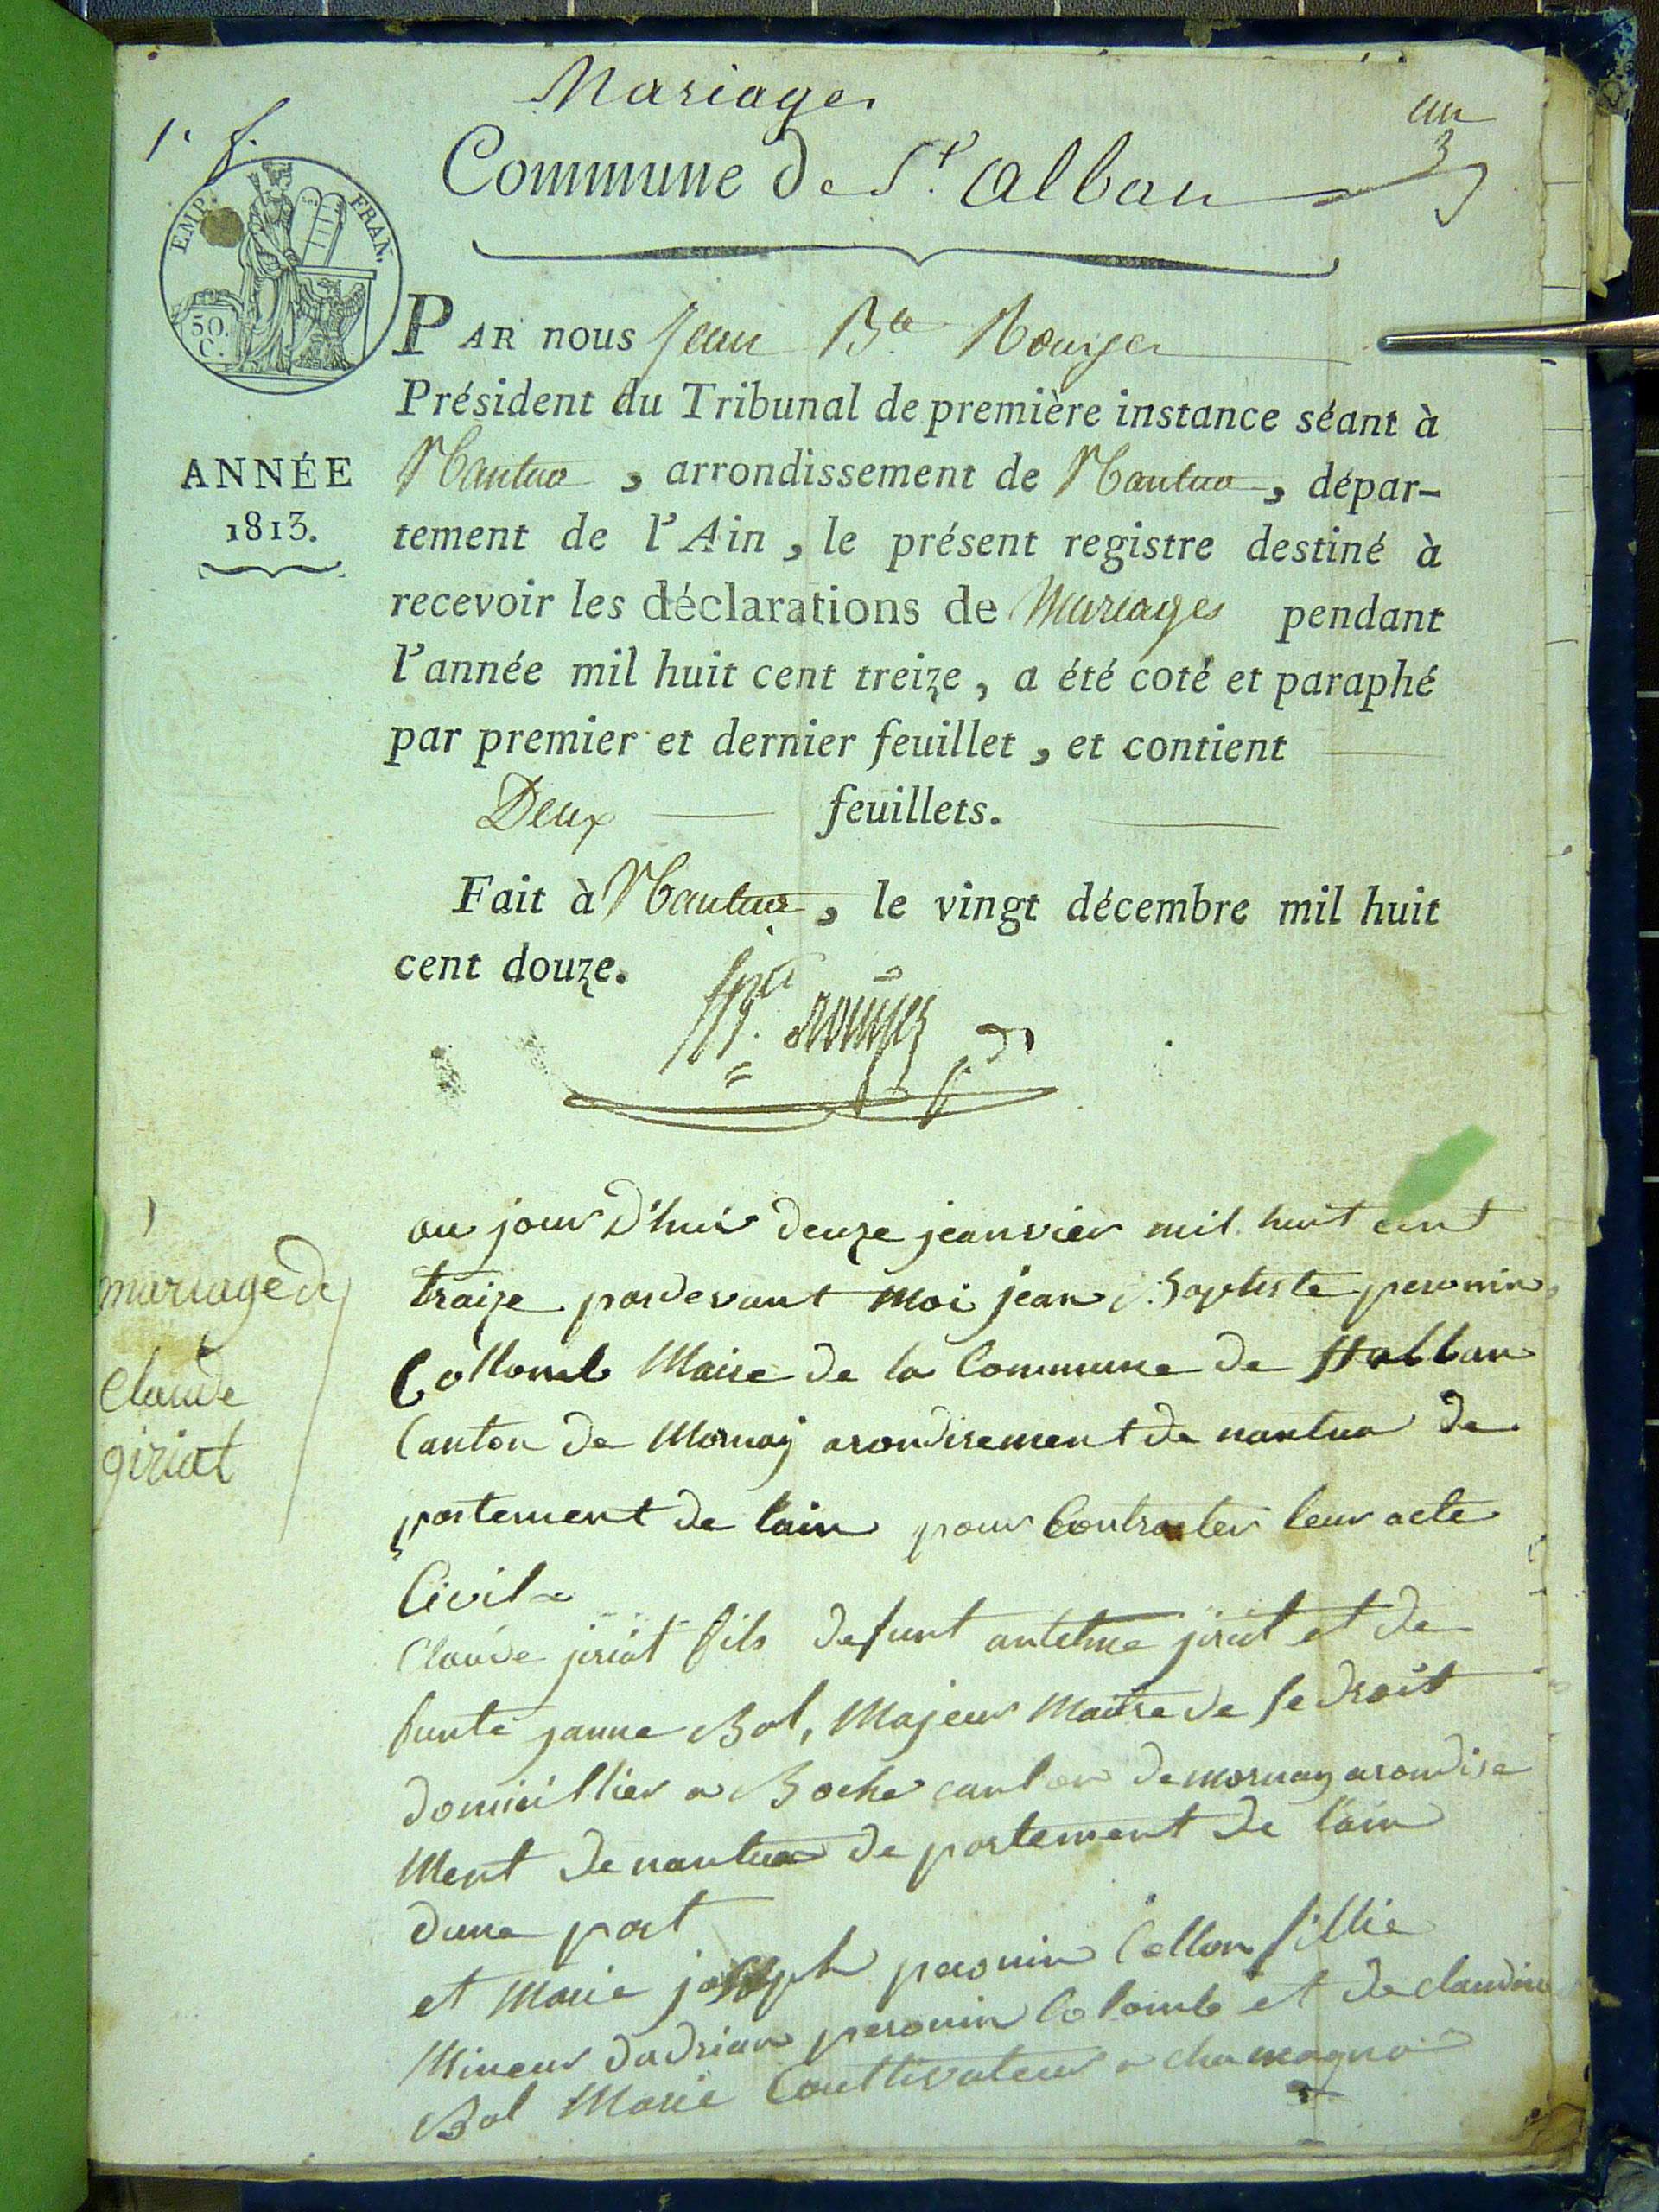 Mariages
1. f.
un
3
Commune de St. alban
EMP. FRAN.
50.
C.
PAR nous Jean Bte Rouyer
Président du Tribunal de première instance séant à
ANNÉE
1813.
Nantua, arrondissement de Nantua, dépar-
tement de l'Ain, le présent registre destiné à
recevoir les déclarations de Mariages pendant
l'année mil huit cent treize, a été coté et paraphé
par premier et dernier feuillet, et contient
Deux feuillets.
Fait à Nantua, le vingt décembre mil huit
cent douze.
1
mariage de
Claude
giriat
au jour d'hui deuze jeanvier mil huit cent
traize pardevant moi jean Baptiste peronin
Collomb Maire de la Commune de Stalban
Canton de Mornay arondisement de nantua de
partement de lain pour Contracter leur acte
Civil
Claude jiriat fils defunt antelme jiriat et de
funte janne Bol, Majeur Maitre de se droit
domicillier a Boche canton de mornay arondise
Ment de nantua de partement de lain
dune part
et Marie joseph peronin Collon fillie
Mineur dadrian peronin Colomb et de claudine
Bol Marie Coulttivateur a chamagna